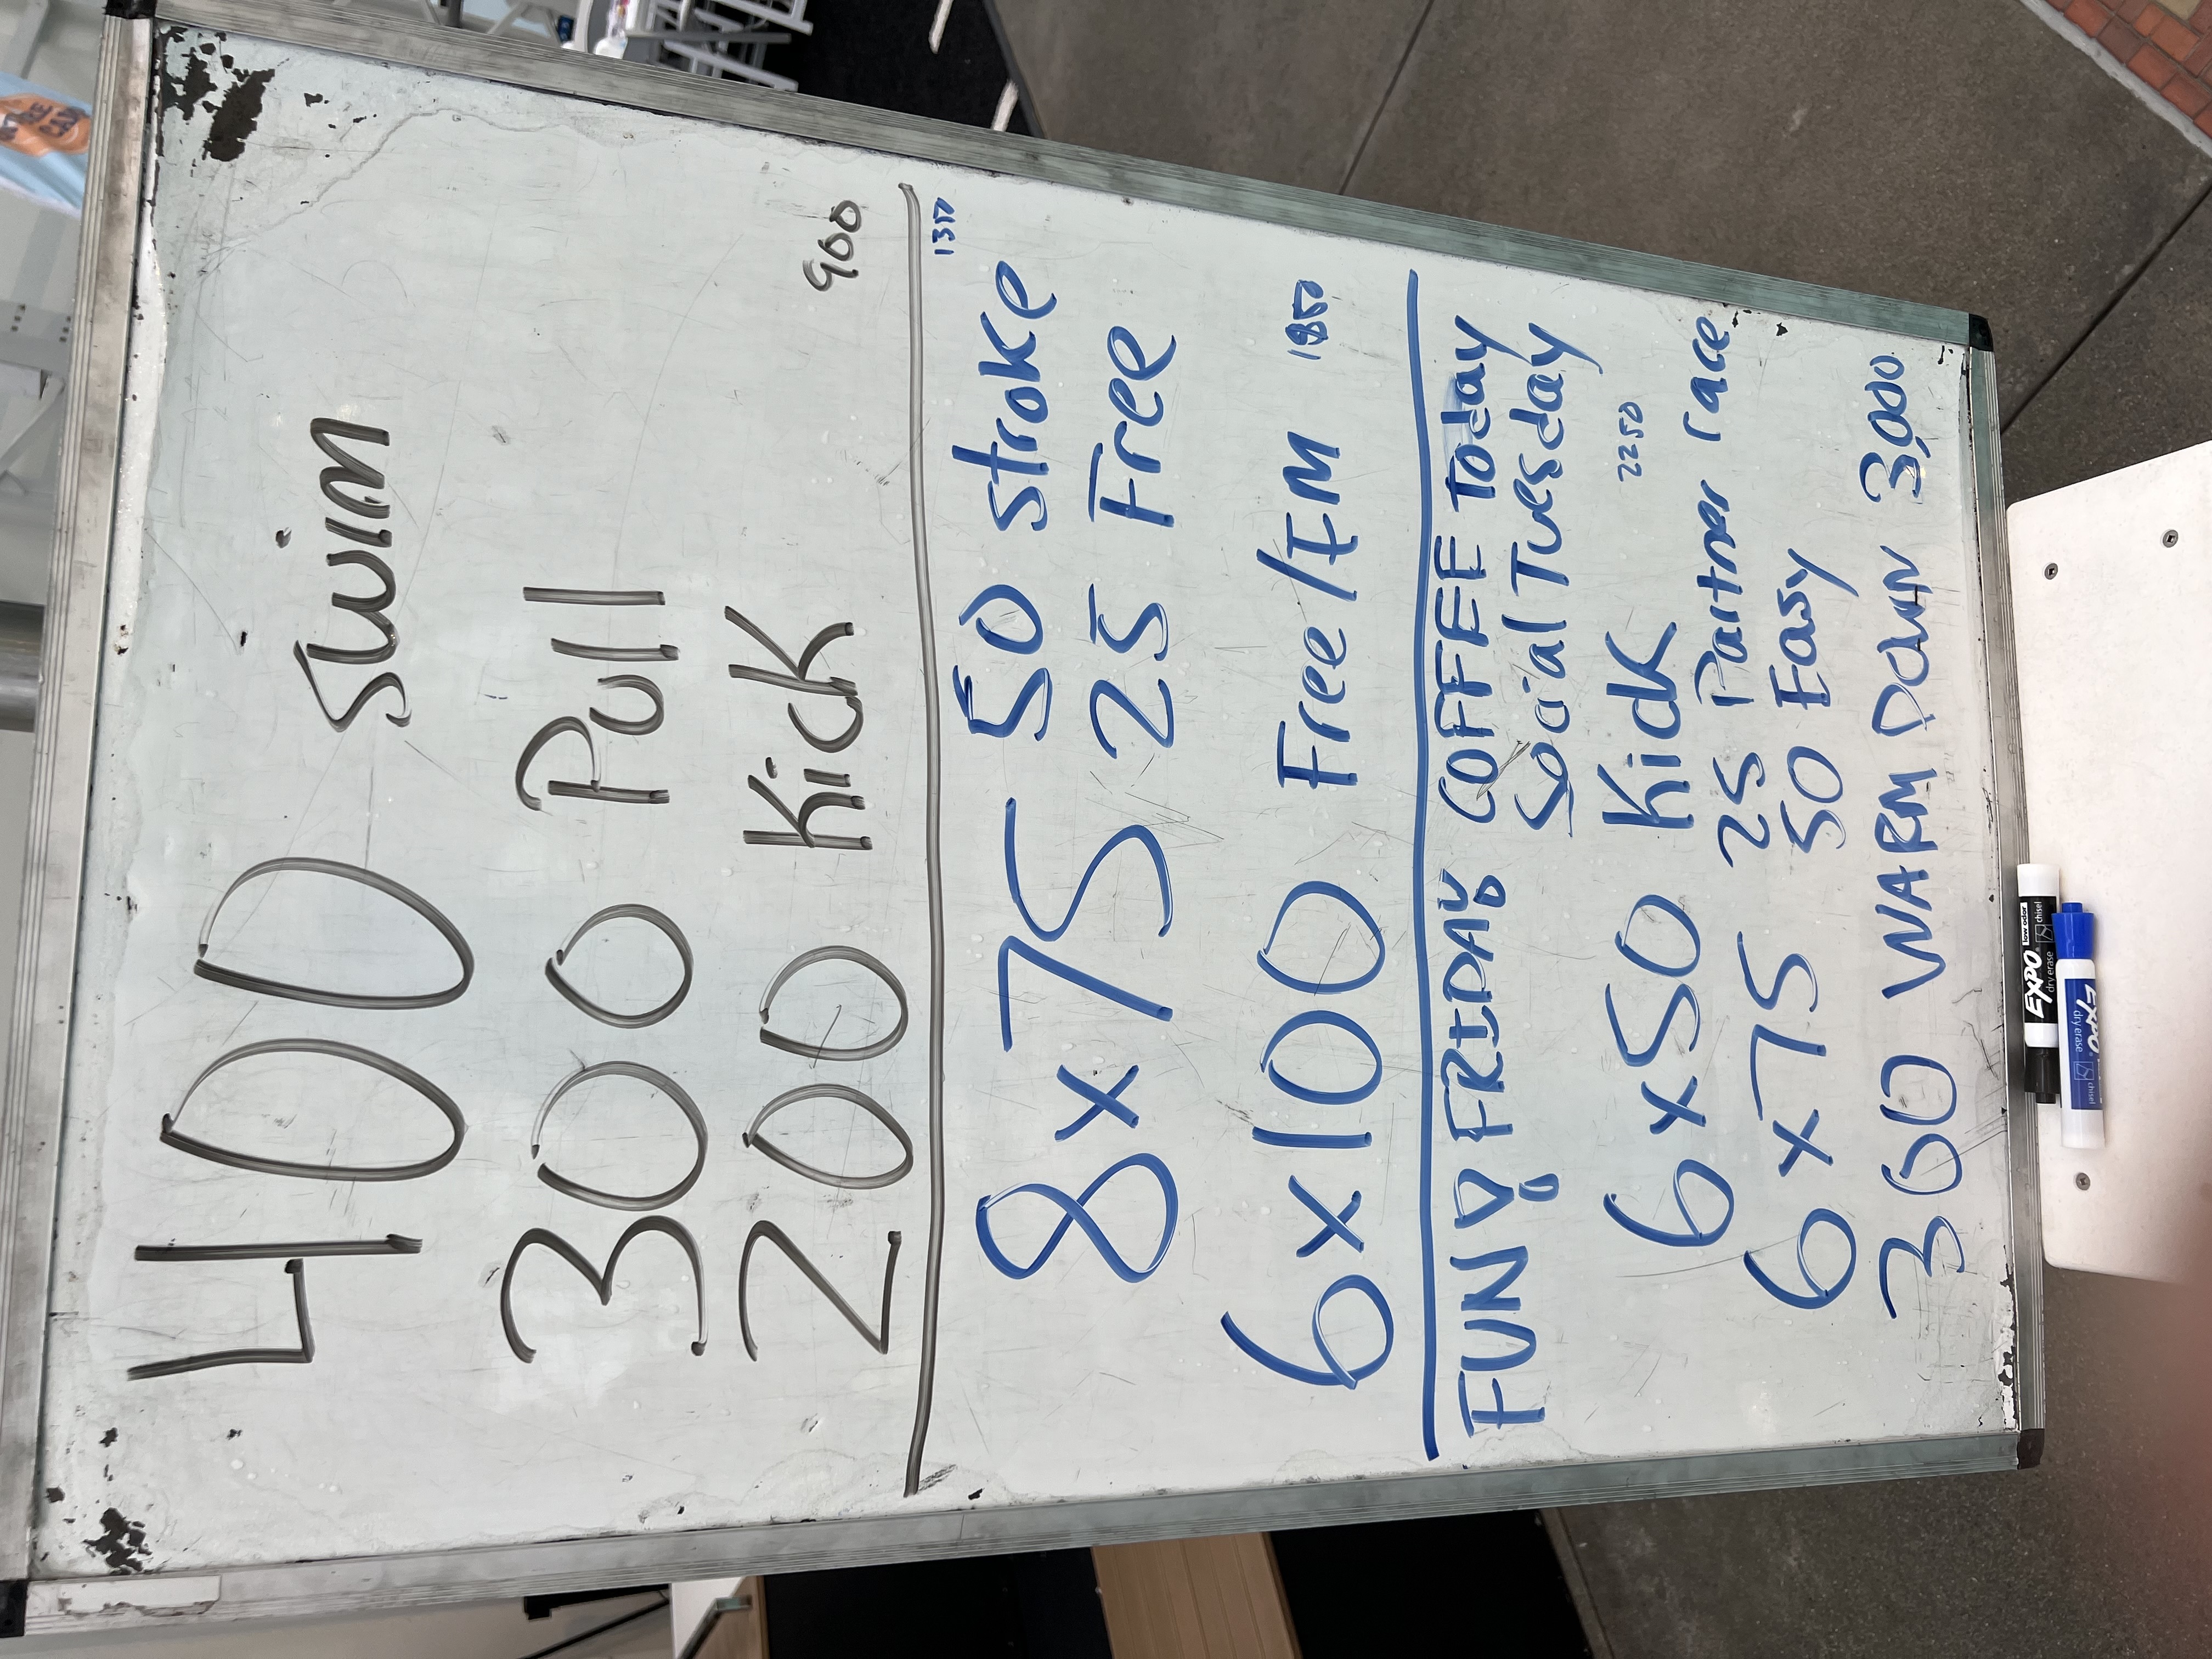 400 Swim
300 Pull
200 Kick
900
1350
8x75 50 stroke
25 Free
6x100 Free/IM 1850
FUN FRIDAY COFFEE Today
Social Tuesday
2250
6x50 Kick
6x75 25 Partner race
50 Easy
300 WARM DOWN 3,000
EXPO
low odor
dry erase
chisel
EXPO
dry erase
chisel